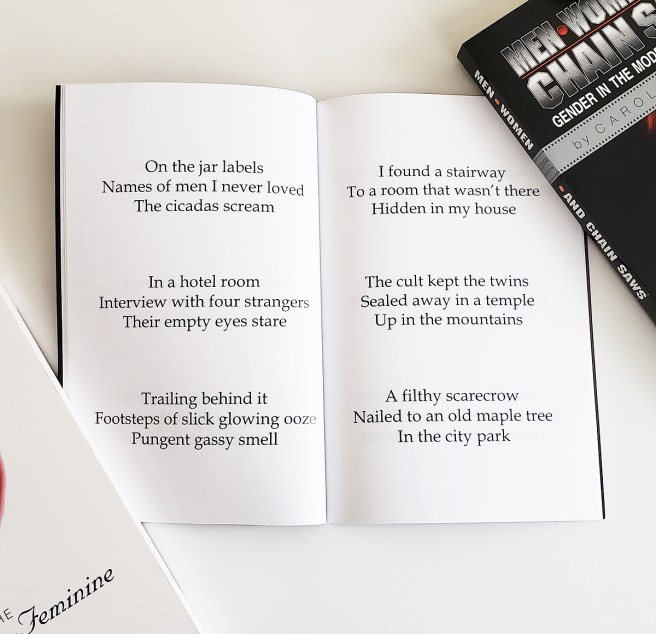 On the jar labels
Names of men I never loved
The cicadas scream
In a hotel room
Interview with four strangers
Their empty eyes stare
Trailing behind it
Footsteps of slick glowing ooze
Pungent gassy smell
I found a stairway
To a room that wasn't there
Hidden in my house
The cult kept the twins
Sealed away in a temple
Up in the mountains
A filthy scarecrow
Nailed to an old maple tree
In the city park
MEN
CHAIN S
GENDER IN THE
by CAROL
MEN•WOMEN
•AND CHAIN SAWS
Feminine